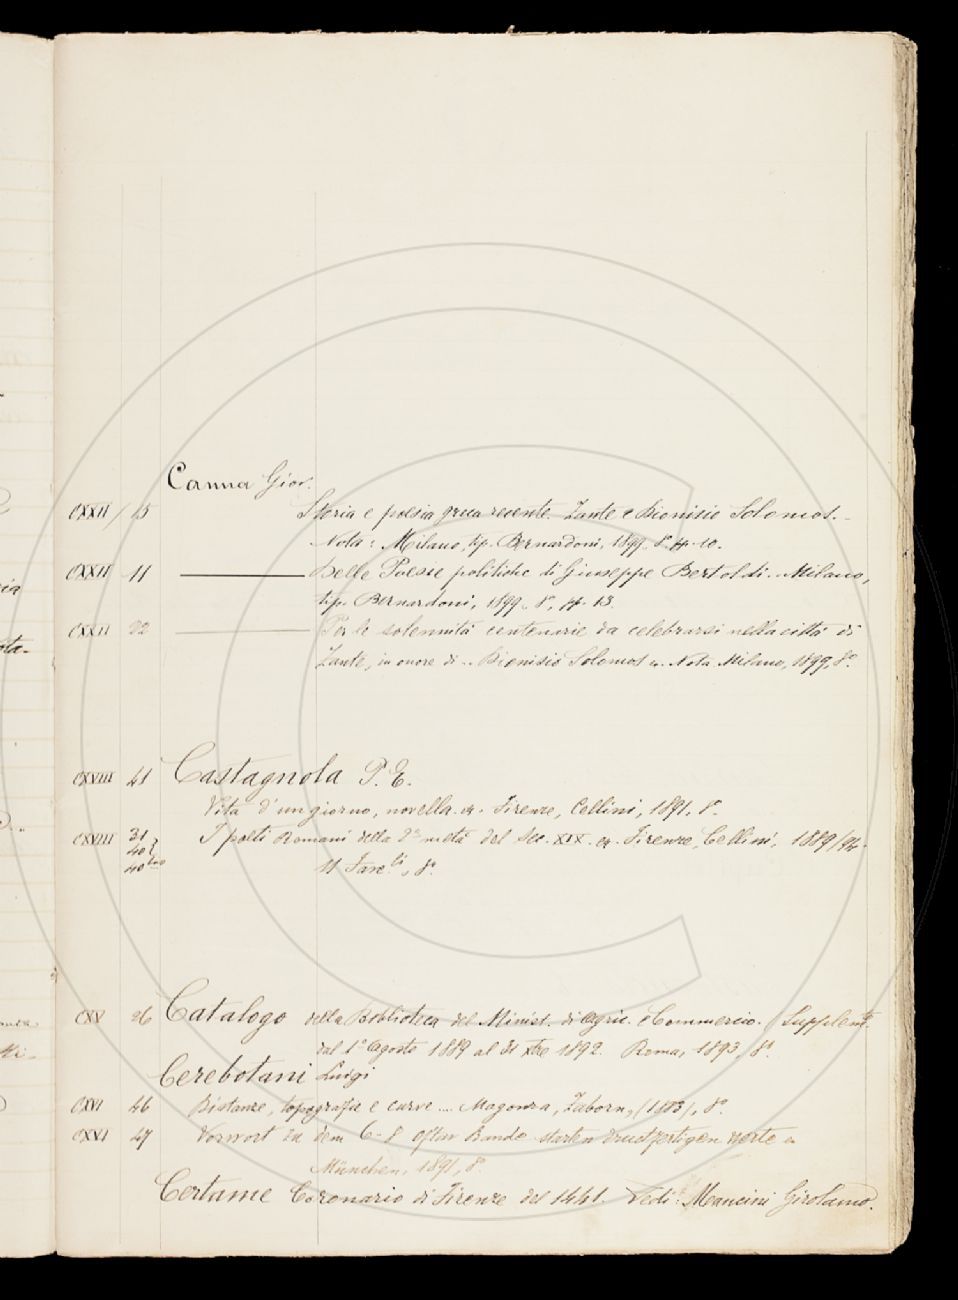 Canna Giov.
CXXII / 15 Storia e poesia greca recente. Zante e Dionisio Solomos. -
Nota: Milano, tip. Bernardoni, 1899. 8. pp. 10.
CXXII 11 ——— Delle Poesie politiche di Giuseppe Bertoldi. Milano,
tip. Bernardoni, 1899. 8., pp. 13.
CXXII 22 ——— Per le solennità centenarie da celebrarsi nella città di
Zante, in onore di .. Dionisio Solomos Nota Milano, 1899, 8°.
CXVIII 41 Castagnola P. E.
Vita d'un giorno, novella. Firenze, Cellini, 1891. 8°.
CXVIII 31 I poeti Romani della 2ª metà del sec. XIX. Firenze, Cellini, 1889/94.
40
40 bis 11 Fasc.li, 8°.
CXV 26 Catalogo della Biblioteca del Minist. di Agric. e Commercio. (Supplem.
dal 1° Agosto 1889 al 31 Xbre 1892. Roma, 1893, 8°.
Cerebotani Luigi
CXVI 46 Distanze, topografia e curve .... Magonza, Zabern, (1883), 8°.
CXVI 47 Vorwort zu dem 6-8 Bande starken druckfertigen
München, 1891, 8°.
Certame Coronario di Firenze del 1441. Vedi: Mancini Girolamo.